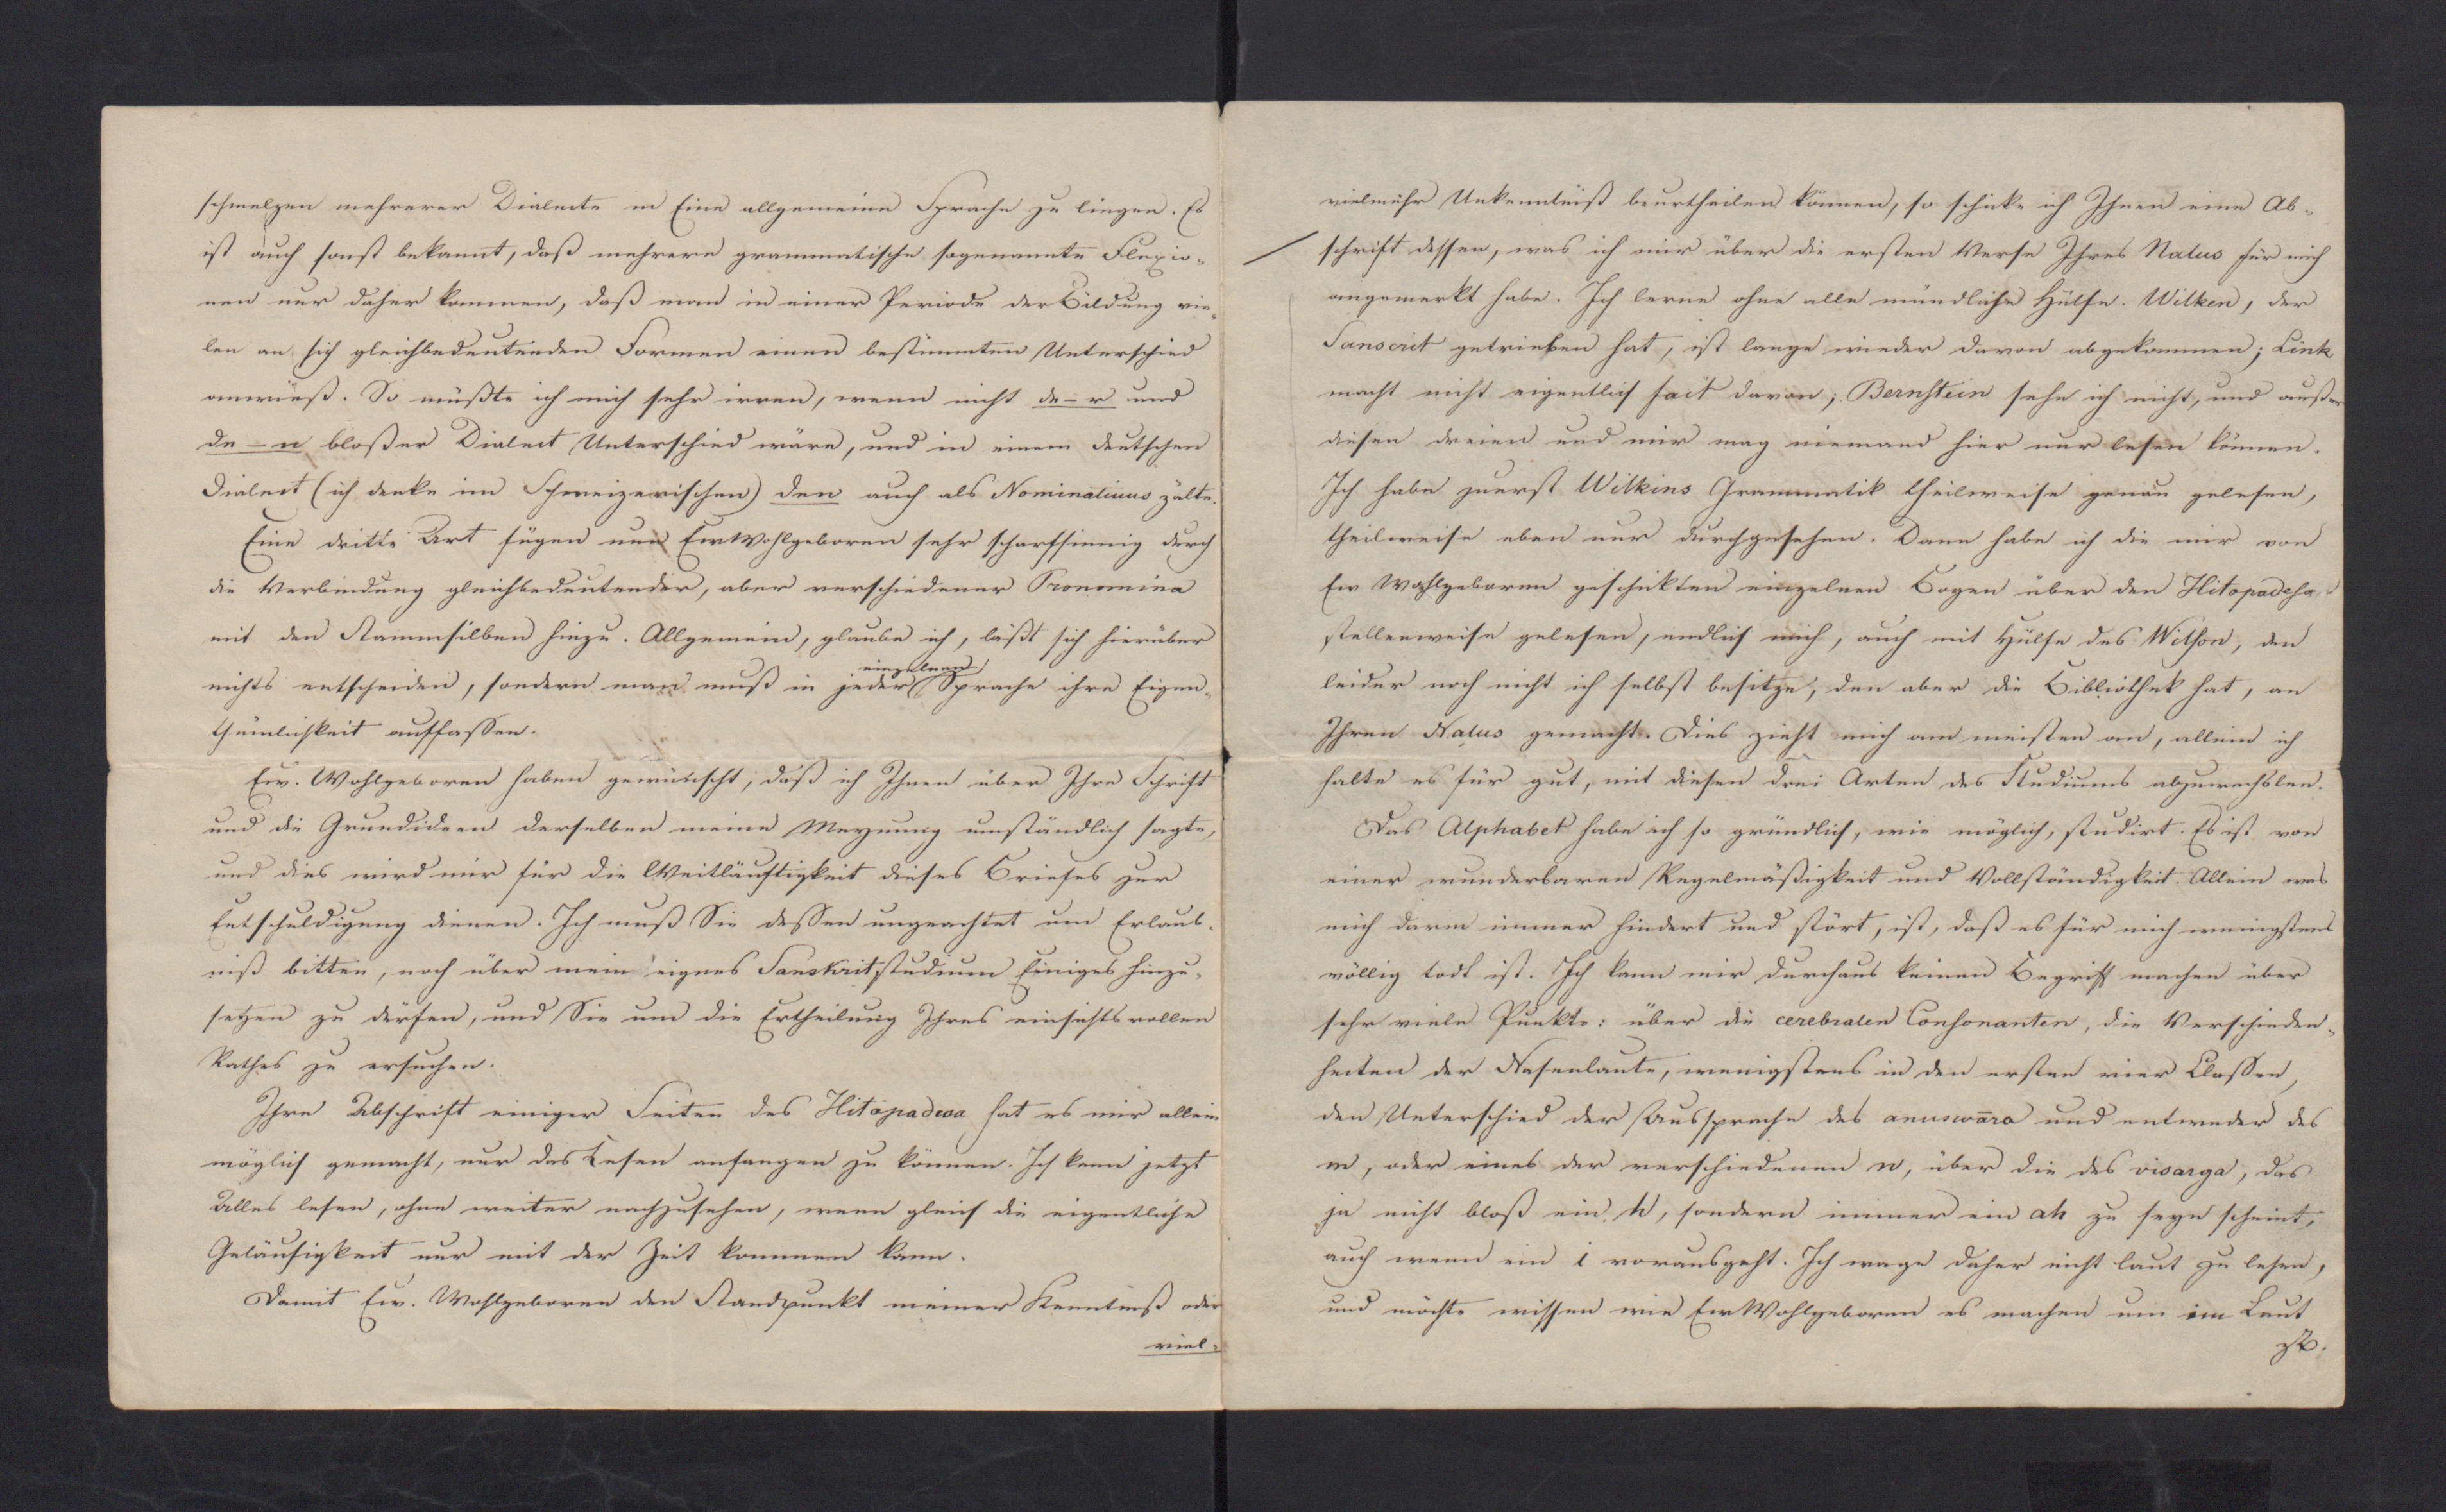 schmelzen mehrerer Dialecte in Eine allgemeine Sprache zu liegen. Es
ist auch sonst bekannt, daß mehrere grammatische sogenannte Flexio-
nen nur daher kommen, daß man in einer Periode der Bildung vie-
len an sich gleichbedeutenden Formen einen bestimmten Unterschied
anwieß. So müßte ich mich sehr irren, wenn nicht de-r und
de-n bloßer Dialect Unterschied wäre, und in einem deutschen
Dialect (ich denke im Schweizerischen) den auch als Nominativus gälte.
Eine dritte Art fügen nun Ew Wohlgeboren sehr scharfsinnig durch
die Verbindung gleichbedeutender, aber verschiedener Pronomina
mit den Stammsilben hinzu. Allgemein, glaube ich, läßt sich hierüber
nichts entscheiden, sondern man muß in jeder einzelnen Sprache ihre Eigen-
thümlichkeit auffassen.
Ew. Wohlgeboren haben gewünscht, daß ich Ihnen über Ihre Schrift
und die Grundideen derselben meine Meynung umständlich sagte,
und dies wird mir für die Weitläuftigkeit dieses Briefes zur
Entschuldigung dienen. Ich muß Sie dessen ungeachtet um Erlaub-
niß bitten, noch über mein eignes Sanskritstudium Einiges hinzu-
setzen zu dürfen, und Sie um die Ertheilung Ihres einsichtsvollen
Rathes zu ersuchen.
Ihre Abschrift einiger Seiten des Hitopadesa hat es mir allein
möglich gemacht, nur das Lesen anfangen zu können. Ich kann jetzt
Alles lesen, ohne weiter nachzusehen, wenn gleich die eigentliche
Geläufigkeit nur mit der Zeit kommen kann.
Damit Ew. Wohlgeboren den Standpunkt meiner Kenntniß oder
viel-
vielmehr Unkenntniß beurtheilen können, so schicke ich Ihnen eine Ab-
schrift dessen, was ich mir über die ersten Verse Ihres Nalus für mich
angemerkt habe. Ich lerne ohne alle mündliche Hülfe. Wilken, der
Sanscrit getrieben hat, ist lange wieder davon abgekommen; Link
macht nicht eigentlich fait davon; Bernstein sehe ich nicht, und außer
diesen dreien und mir mag niemand hier nur lesen können.
Ich habe zuerst Wilkins Grammatik theilweise genau gelesen,
theilweise eben nur durchgesehen. Dann habe ich die mir von
Ew Wohlgeboren geschickten einzelnen Bogen über den Hitopadesa
stellenweise gelesen, endlich mich, auch mit Hülfe des Wilson, den
leider noch nicht ich selbst besitze, den aber die Bibliothek hat, an
Ihren Nalus gemacht. Dies zieht mich am meisten an, allein ich
halte es für gut, mit diesen drei Arten des Studiums abzuwechslen.
Das Alphabet habe ich so gründlich, wie möglich, studirt. Es ist von
einer wunderbaren Regelmäßigkeit und Vollständigkeit. Allein was
mich darin immer hindert und stört, ist, daß es für mich wenigstens
völlig todt ist. Ich kann mir durchaus keinen Begriff machen über
sehr viele Punkte: über die cerebralen Consonanten, die Verschieden-
heiten der Nasenlaute, wenigstens in den ersten vier Classen,
den Unterschied der Aussprache des anuswāra und entweder des
m, oder eines der verschiedenen n, über die des visarga, das
ja nicht bloß ein h, sondern immer ein ah zu seyn scheint,
auch wenn ein i vorausgeht. Ich wage daher nicht laut zu lesen,
und möchte wissen wie Ew Wohlgeboren es machen um im Laut